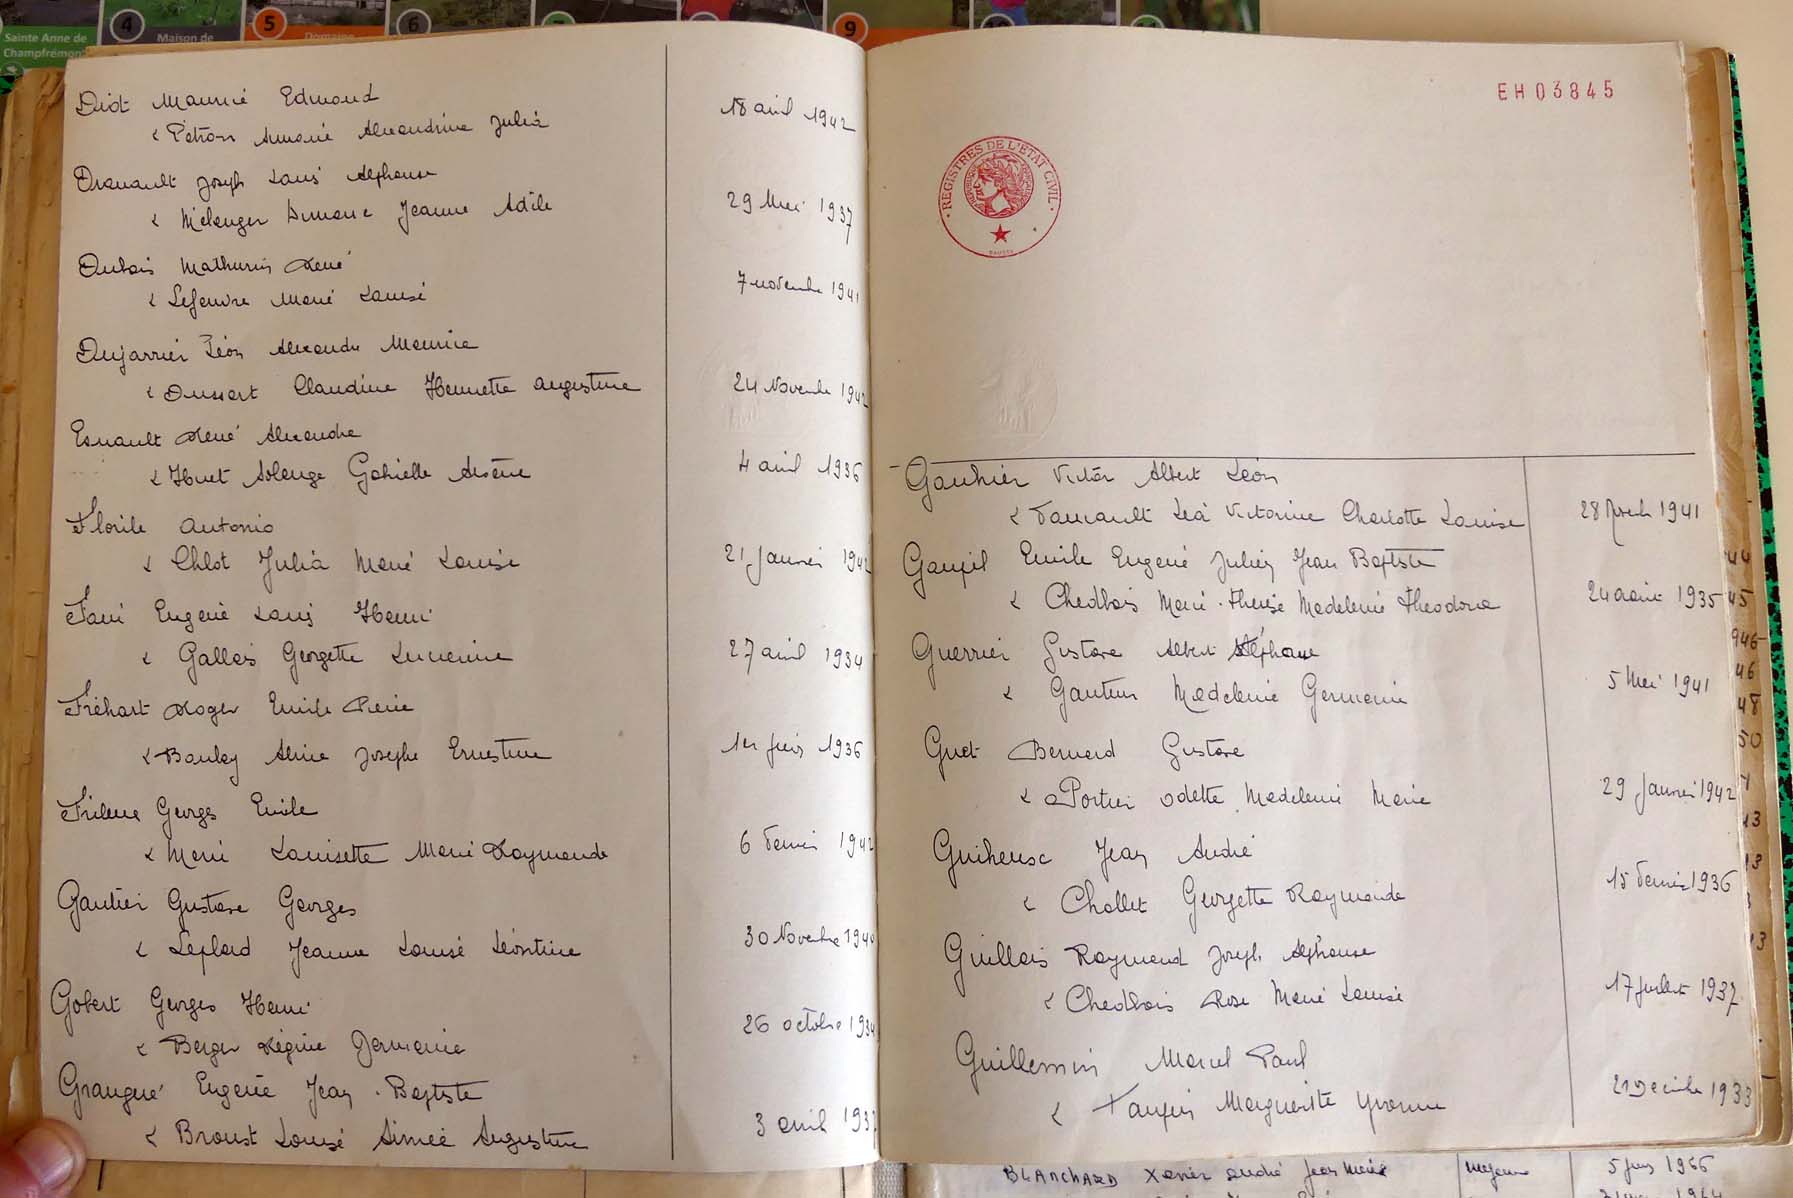 Sainte Anne de
Champfrémont
4
Maison de
5
Domaine
6
9
Diot Maurice Edmond
& Pétron Simone Alexandrine Julia
18 avril 1942
Drouault Joseph Louis Alphonse
& Mélenger Simone Jeanne Adèle
29 Mai 1937
Dubois Mathurin René
& Lefeuvre Marie Louise
7 novembre 1941
Dujarrier Léon Alexandre Maurice
& Dussart Claudine Henriette Augustine
24 Novembre 1942
Esnault René Alexandre
& Huet Solange Gabrielle Arsène
4 avril 1936
Florile Antonio
& Chlot Julia Marie Louise
21 Janvier 1942
Eugène Louis Henri
& Gallais Georgette Lucienne
27 avril 1934
Fréhart Roger Emile Pierre
& Boulay Aline Josephe Ernestine
1er juin 1936
Georges Emile
& Louisette Marie Raymonde
6 Février 1942
Gautier Gustave Georges
& Leplard Jeanne Louise Léontine
30 Novembre 1940
Gobert Georges Henri
& Berger Régine Germaine
26 octobre 1934
Eugène Jean-Baptiste
& Broust Louise Aimée Augustine
3 avril 1937
EH03845
REGISTRES DE L'ÉTAT CIVIL
Gauhier Victor Albert Léon
& Léa Victorine Charlotte Louise
28 1941
Goupil Emile Eugène Julien Jean Baptiste
& Chedbois Marie-Thérèse Madeleine Théodora
24 août 1935
Guerrier Gustave Albert Stéphane
& Madeleine Germaine
5 Mai 1941
Guet Bernard Gustave
& Portier Odette Madeleine Marie
29 Janvier 1942
Guiheusc Jean André
& Chollet Georgette Raymonde
15 Février 1936
Guillois Raymond Joseph Alphonse
& Chedbois Rose Marie Louise
17 juillet 1937
Guillemin Marcel Paul
& Marguerite Yvonne
21 Décembre 1933
44
45
946
46
48
50
BLANCHARD Xavier André Jean Marie
5 Juin 1966
1964